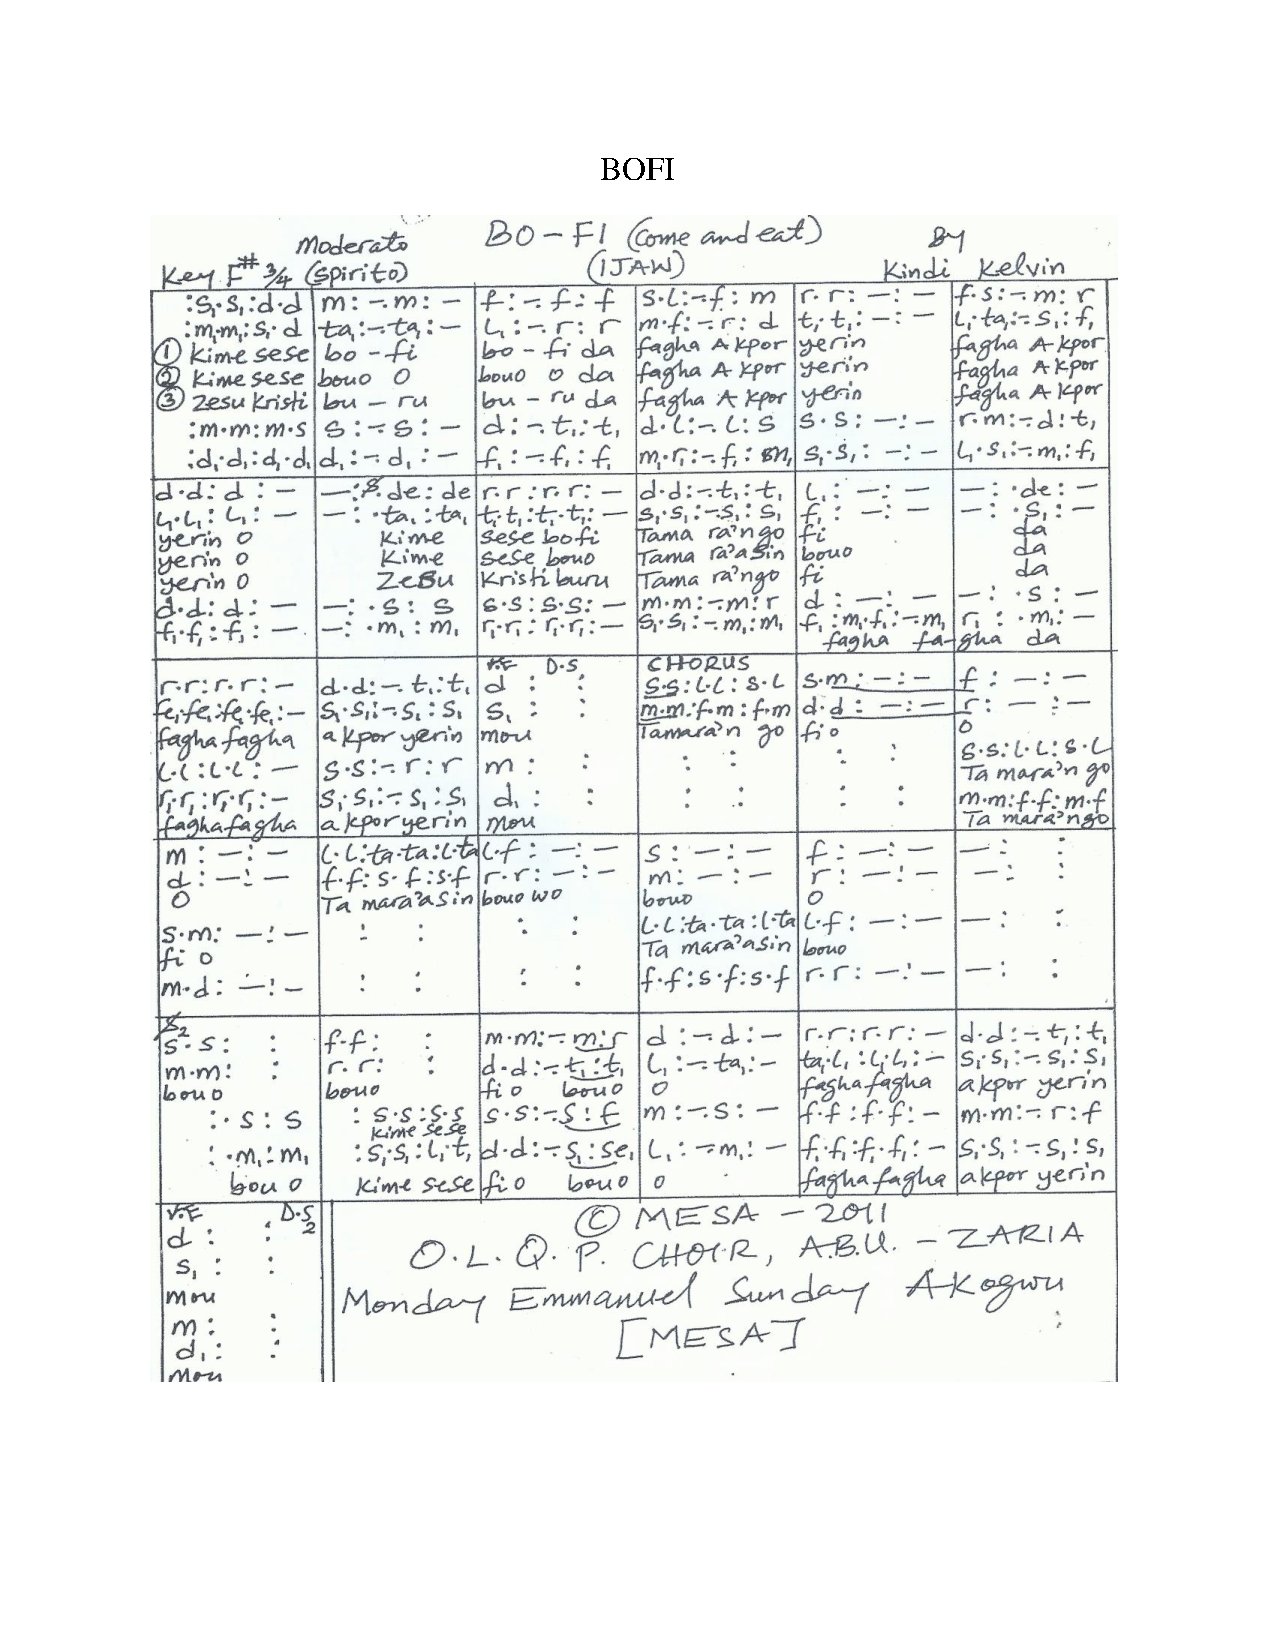 BOFI
Moderato BO-FI (Come and eat) By
Key F# 3/4 (Spirito) (IJAW) Kindi Kelvin
:s₁·s₁:d·d | m:-·m:- | f:-·f:f | s·l:-·f:m | r·r:-:- | f·s:-·m:r
:m₁·m₁:s₁·d | ta₁:-·ta₁:- | l₁:-·r:r | m·f:-·r:d | t₁·t₁:-:- | l₁·ta₁:-·s₁:f₁
① Kime sese | bo - fi | bo - fi da | fagha A kpor | yerin | fagha A kpor
② Kime sese | bouo o | bouo o da | fagha A kpor | yerin | fagha A kpor
③ Zesu Kristi | bu - ru | bu - ru da | fagha A kpor | yerin | fagha A kpor
:m·m:m·s | s:-·s:- | d:-·t₁:t₁ | d·l:-·l:s | s·s:-:- | r·m:-·d:t₁
:d₁·d₁:d₁·d₁ | d₁:-·d₁:- | f₁:-·f₁:f₁ | m₁·r₁:-·f₁:m₁ | s₁·s₁:-:- | l₁·s₁:-·m₁:f₁
d·d:d:- | -:·de:de | r·r:r·r:- | d·d:-·t₁:t₁ | l₁:-:- | -:·de:-
l₁·l₁:l₁:- | -:·ta₁:ta₁ | t₁·t₁:t₁·t₁:- | s₁·s₁:-·s₁:s₁ | f₁:-:- | -:·s₁:-
yerin o | Kime | sese bofi | Tama ra'ngo | fi | da
yerin o | Kime | sese bouo | Tama ra'asin | bouo | da
yerin o | Zesu | Kristi buru | Tama ra'ngo | fi | da
d·d:d:- | -:·s:s | s·s:s·s:- | m·m:-·m:r | d:-:- | -:·s:-
f₁·f₁:f₁:- | -:·m₁:m₁ | r₁·r₁:r₁·r₁:- | s₁·s₁:-·m₁:m₁ | f₁:m₁·f₁:-·m₁ | r₁:·m₁:-
fagha fa-gha da
V.F D.S. CHORUS
r·r:r·r:- | d·d:-·t₁:t₁ | d : : | s·s:l·l:s·l | s·m:-:- | f:-:-
fe₁·fe₁:fe₁·fe₁:- | s₁·s₁:-·s₁:s₁ | s₁ : : | m·m:f·m:f·m | d·d:-:- | r:-:-
fagha fagha | a kpor yerin | mou | Tamara'n go | fi o | o
l·l:l·l:- | s·s:-·r:r | m : : | : : | : : | s·s:l·l:s·l
Ta mara'n go
r₁·r₁:r₁·r₁:- | s₁·s₁:-·s₁:s₁ | d₁ : : | : : | : : | m·m:f·f:m·f
fagha fagha | a kpor yerin | mou | Ta mara'ngo
m:-:- | l·l:ta·ta:l·ta | l·f:-:- | s:-:- | f:-:- | -: :
d:-:- | f·f:s·f:s·f | r·r:-:- | m:-:- | r:-:- | -: :
o | Ta mara'asin | bouo wo | bouo | o
s·m:-:- | : : | : : | l·l:ta·ta:l·ta | l·f:-:- | -: :
fi o | Ta mara'asin | bouo
m·d:-:- | : : | : : | f·f:s·f:s·f | r·r:-:- | -: :
S₂
s·s: : | f·f: : | m·m:-·m:r | d:-·d:- | r·r:r·r:- | d·d:-·t₁:t₁
m·m: : | r·r: : | d·d:-·t₁:t₁ | l₁:-·ta₁:- | ta₁·l₁:l₁·l₁:- | s₁·s₁:-·s₁:s₁
bouo | bouo | fi o bouo | o | fagha fagha | akpor yerin
:·s:s | :s·s:s·s | s·s:-·s:f | m:-·s:- | f·f:f·f:- | m·m:-·r:f
Kime sese
:·m₁:m₁ | :s₁·s₁:l₁·t₁ | d·d:-·s₁:se₁ | l₁:-·m₁:- | f₁·f₁:f₁·f₁:- | s₁·s₁:-·s₁:s₁
bou o | Kime sese | fi o bouo | o | fagha fagha | akpor yerin
V.F D.S₂
d : :
s₁ : :
mou
m: :
d₁: :
mou
© MESA - 2011
O.L.Q.P. CHOIR, A.B.U. - ZARIA
Monday Emmanuel Sunday Akogwu
[MESA]